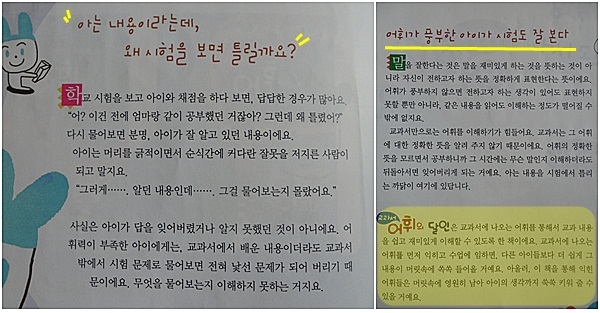 "아는 내용이라는데,
왜 시험을 보면 틀릴까요?"
학교 시험을 보고 아이와 채점을 하다 보면, 답답한 경우가 많아요.
"어? 이건 전에 엄마랑 같이 공부했던 거잖아? 그런데 왜 틀렸어?"
다시 물어보면 분명, 아이가 잘 알고 있던 내용이에요.
아이는 머리를 긁적이면서 순식간에 커다란 잘못을 저지른 사람이
되고 말지요.
"그러게……. 알던 내용인데……. 그걸 물어보는지 몰랐어요."
사실은 아이가 답을 잊어버렸거나 알지 못했던 것이 아니에요. 어
휘력이 부족한 아이에게는, 교과서에서 배운 내용이더라도 교과서
밖에서 시험 문제로 물어보면 전혀 낯선 문제가 되어 버리기 때
문이에요. 무엇을 물어보는지 이해하지 못하는 거지요.
어휘가 풍부한 아이가 시험도 잘 본다
말을 잘한다는 것은 말을 재미있게 하는 것을 뜻하는 것이 아
니라 자신이 전하고자 하는 뜻을 정확하게 표현한다는 뜻이에요.
어휘가 풍부하지 않으면 전하고자 하는 생각이 있어도 표현하지
못할 뿐만 아니라, 같은 내용을 읽어도 이해하는 정도가 떨어질 수
밖에 없지요.
교과서만으로는 어휘를 이해하기가 힘들어요. 교과서는 그 어휘
에 대한 정확한 뜻을 알려 주지 않기 때문이에요. 어휘의 정확한
뜻을 모르면서 공부하니까 그 시간에는 무슨 말인지 이해하더라도
뒤돌아서면 잊어버리게 되는 거예요. 아는 내용을 시험에서 틀리
는 까닭이 여기에 있답니다.
교과서 어휘의 달인은 교과서에 나오는 어휘를 통해서 교과 내용
을 쉽고 재미있게 이해할 수 있도록 한 책이에요. 교과서에 나오는
어휘를 먼저 익히고 수업에 임하면, 다른 아이들보다 더 쉽게 그
내용이 머릿속에 쏙쏙 들어올 거예요. 아울러, 이 책을 통해 익힌
어휘들은 머릿속에 영원히 남아 아이의 생각까지 쑥쑥 키워 줄 수
있을 거예요.